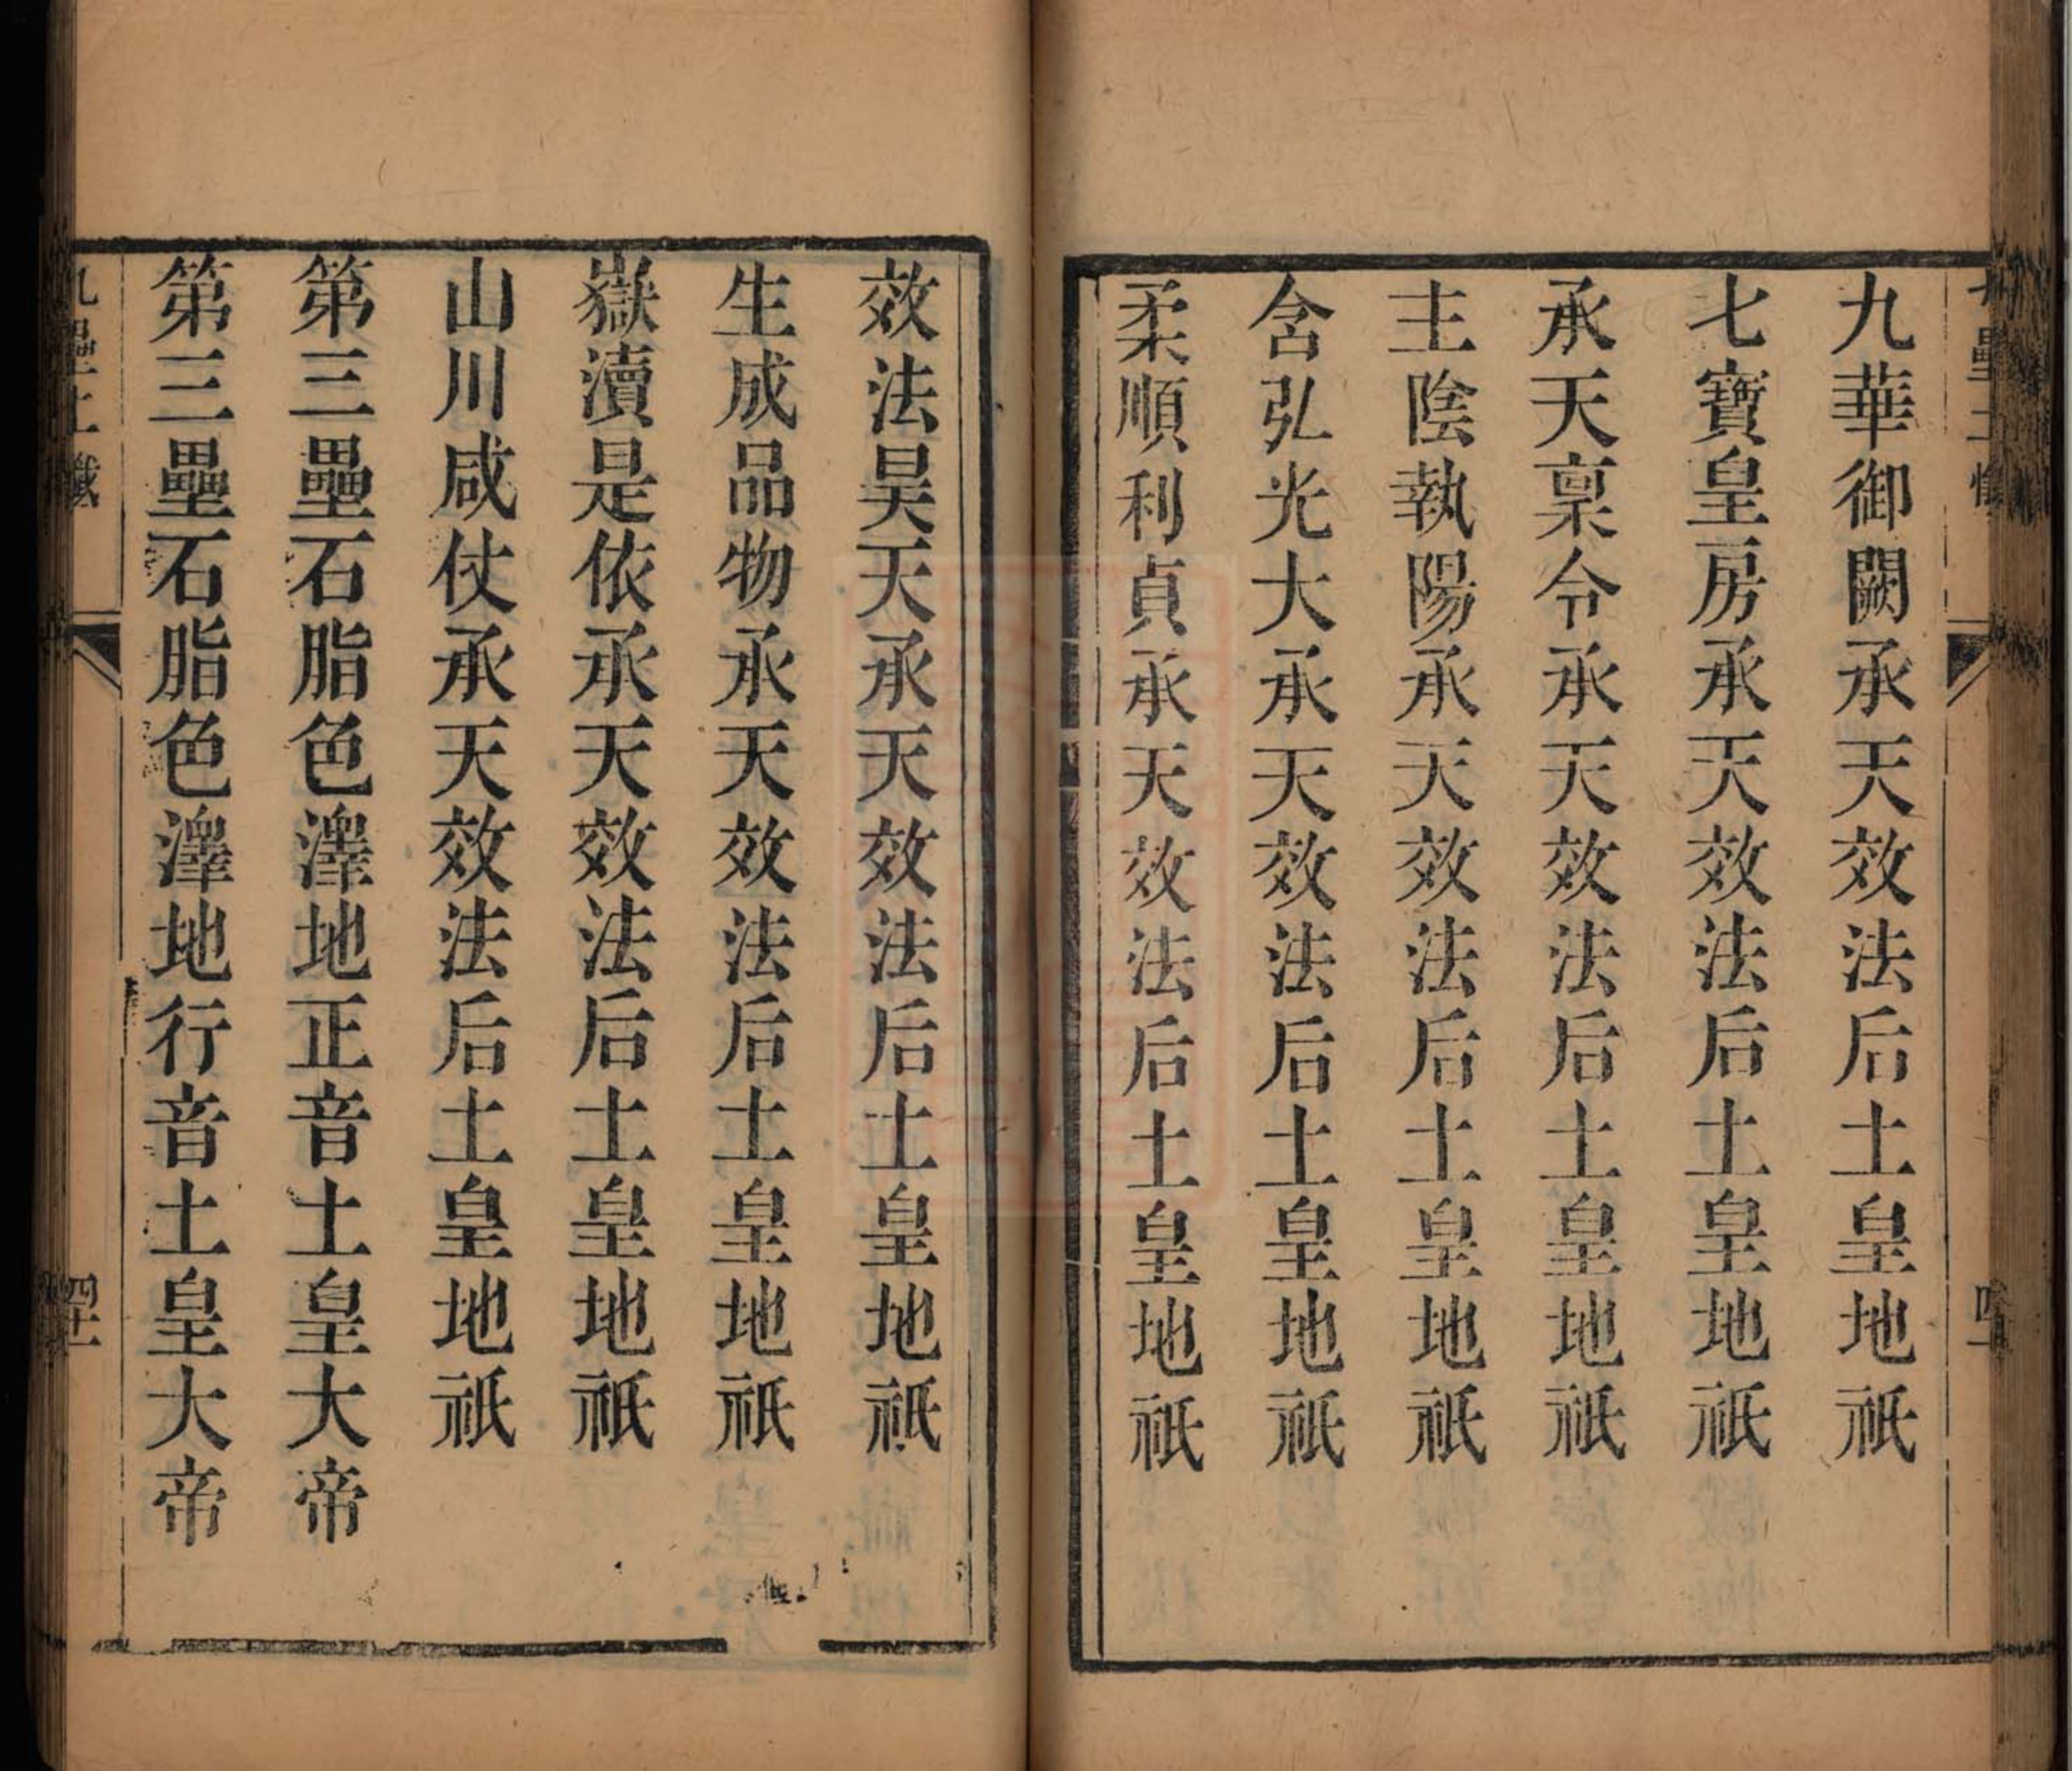 九華御闕承天效法后土皇地祇
七寶皇房承天效法后土皇地祇
承天稟令承天效法后土皇地祇
主陰執陽承天效法后土皇地祇
含弘光大承天效法后土皇地祇
柔順利貞承天效法后土皇地祇
效法昊天承天效法后土皇地祇
生成品物承天效法后土皇地祇
嶽瀆是依承天效法后土皇地祇
山川咸仗承天效法后土皇地祇
第三壘石脂色澤地正音土皇大帝
第三壘石脂色澤地行音土皇大帝
九壘土懺